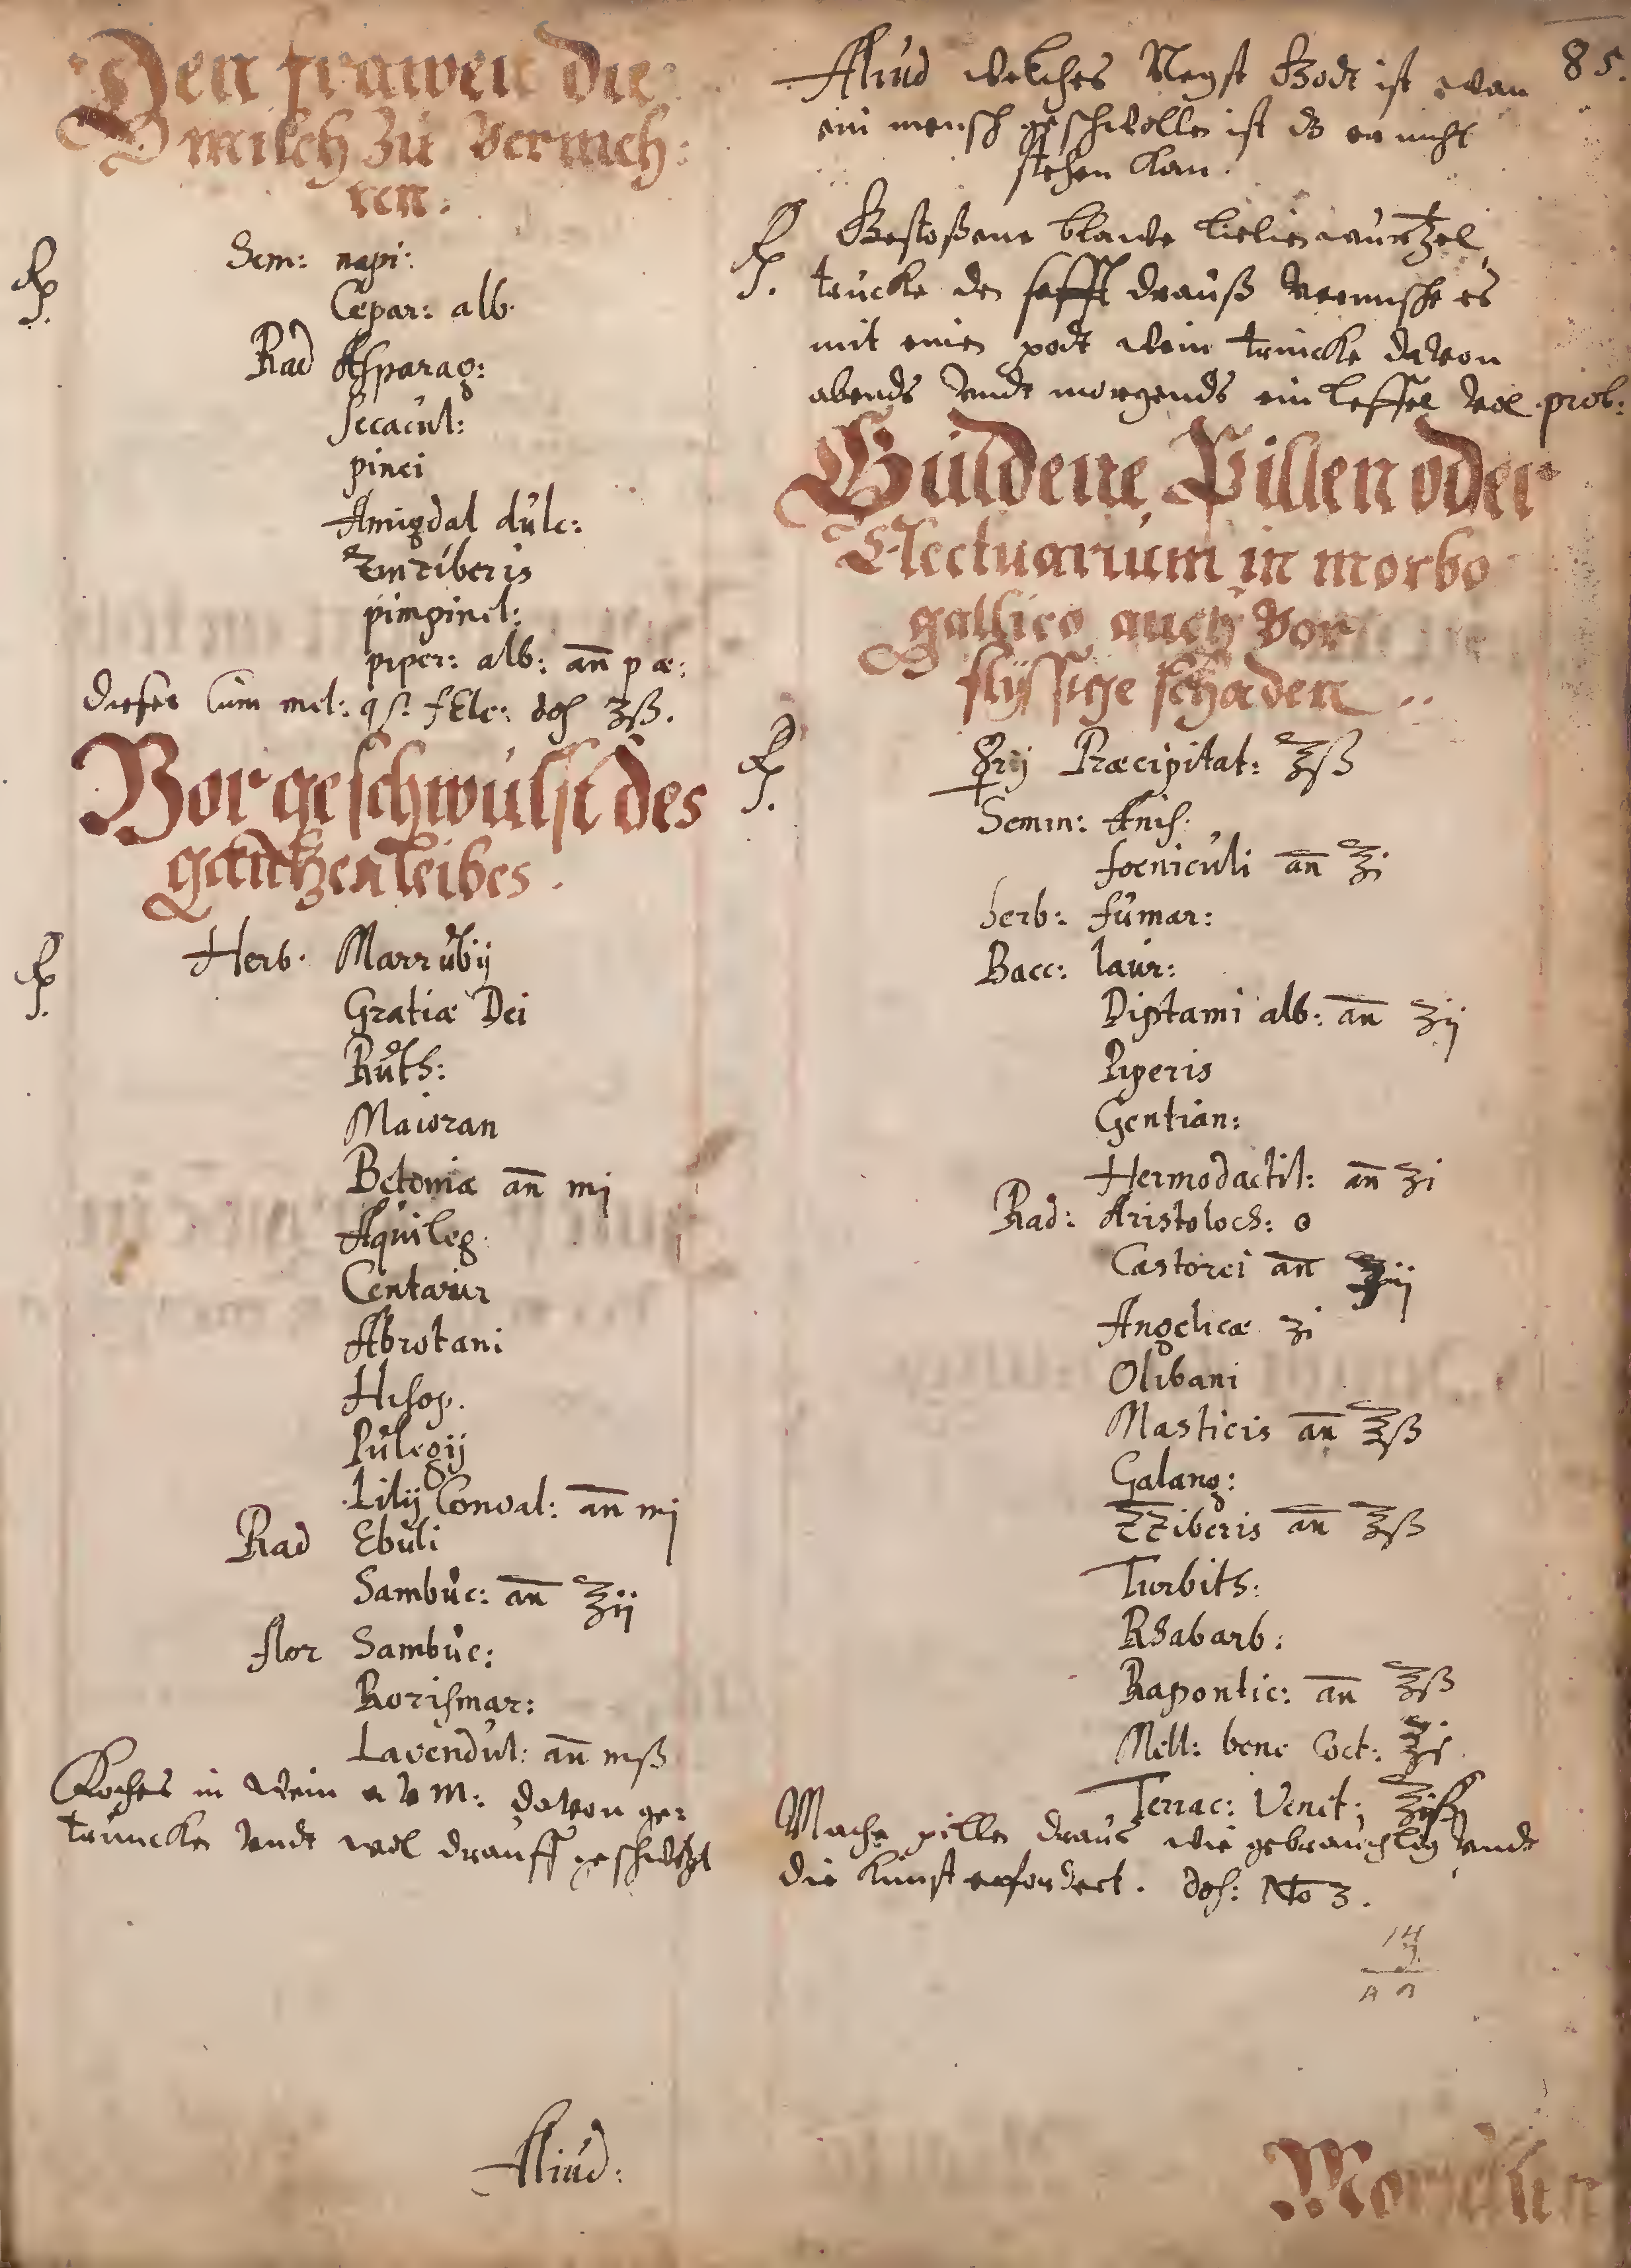 Den frawen die
milch zu vermeh:
ren.
℞. Sem: napi:
Cepar: alb.
Rad Asparag:
Secacul:
pinei
Amigdal dulc:
Zinziberis
pimpinel:
piper: alb: an̄ p æ:
dieses Cum mel: q s. f Elc: dos ʒß.
Vor geschwulst des
gantzen leibes.
℞. Herb. Marrubij
Gratiæ Dei
Ruth:
Maioran
Betoniæ an̄ mj
Aquileg.
Centaur
Abrotani
Hisop.
Pulegij
Lilij Conval: an̄ mj
Rad Ebuli
Sambuc: an̄ ℥ij
flor Sambuc:
Rorismar:
Lavendul: an̄ mß
Koches in wein a v m: davon ge=
truncken vndt wol drauff geschwitzt
Aliud:
85.
Aliud welches Negst Godt ist wan
ein mensch geschwollen ist ds er nicht
stehen kan.
℞. Gestoßene blawe lielien wurtzel
trucke den safft drauß vermische es
mit einen podt wein trincke davon
abends vndt morgends ein leffel vol prob:
Güldene Pillen oder
Electuarium in morbo
gallico auch vor
flyssige schaden ..
℞. ☿rij Præcipitat: ℥ß
Semin: Anis:
foeniculi an̄ ℥i
herb: fumar:
Bacc: laur:
Diptami alb: an̄ ʒij
Piperis
Gentian:
Hermodactil: an̄ ʒi
Rad: Aristoloch: o
Castorei an̄ ʒiij
Angelicæ ʒi
Olibani
Masticis an̄ ℥ß
Galang:
ZZiberis an̄ ℥ß
Turbith:
Rhabarb:
Rapontic: an̄ ℥ß
Mell: bene Coct:
Terrac: Venet:
Mache pillen draus wie gebrauchlig vndt
die kunst erfordert. dos: No 3.
14